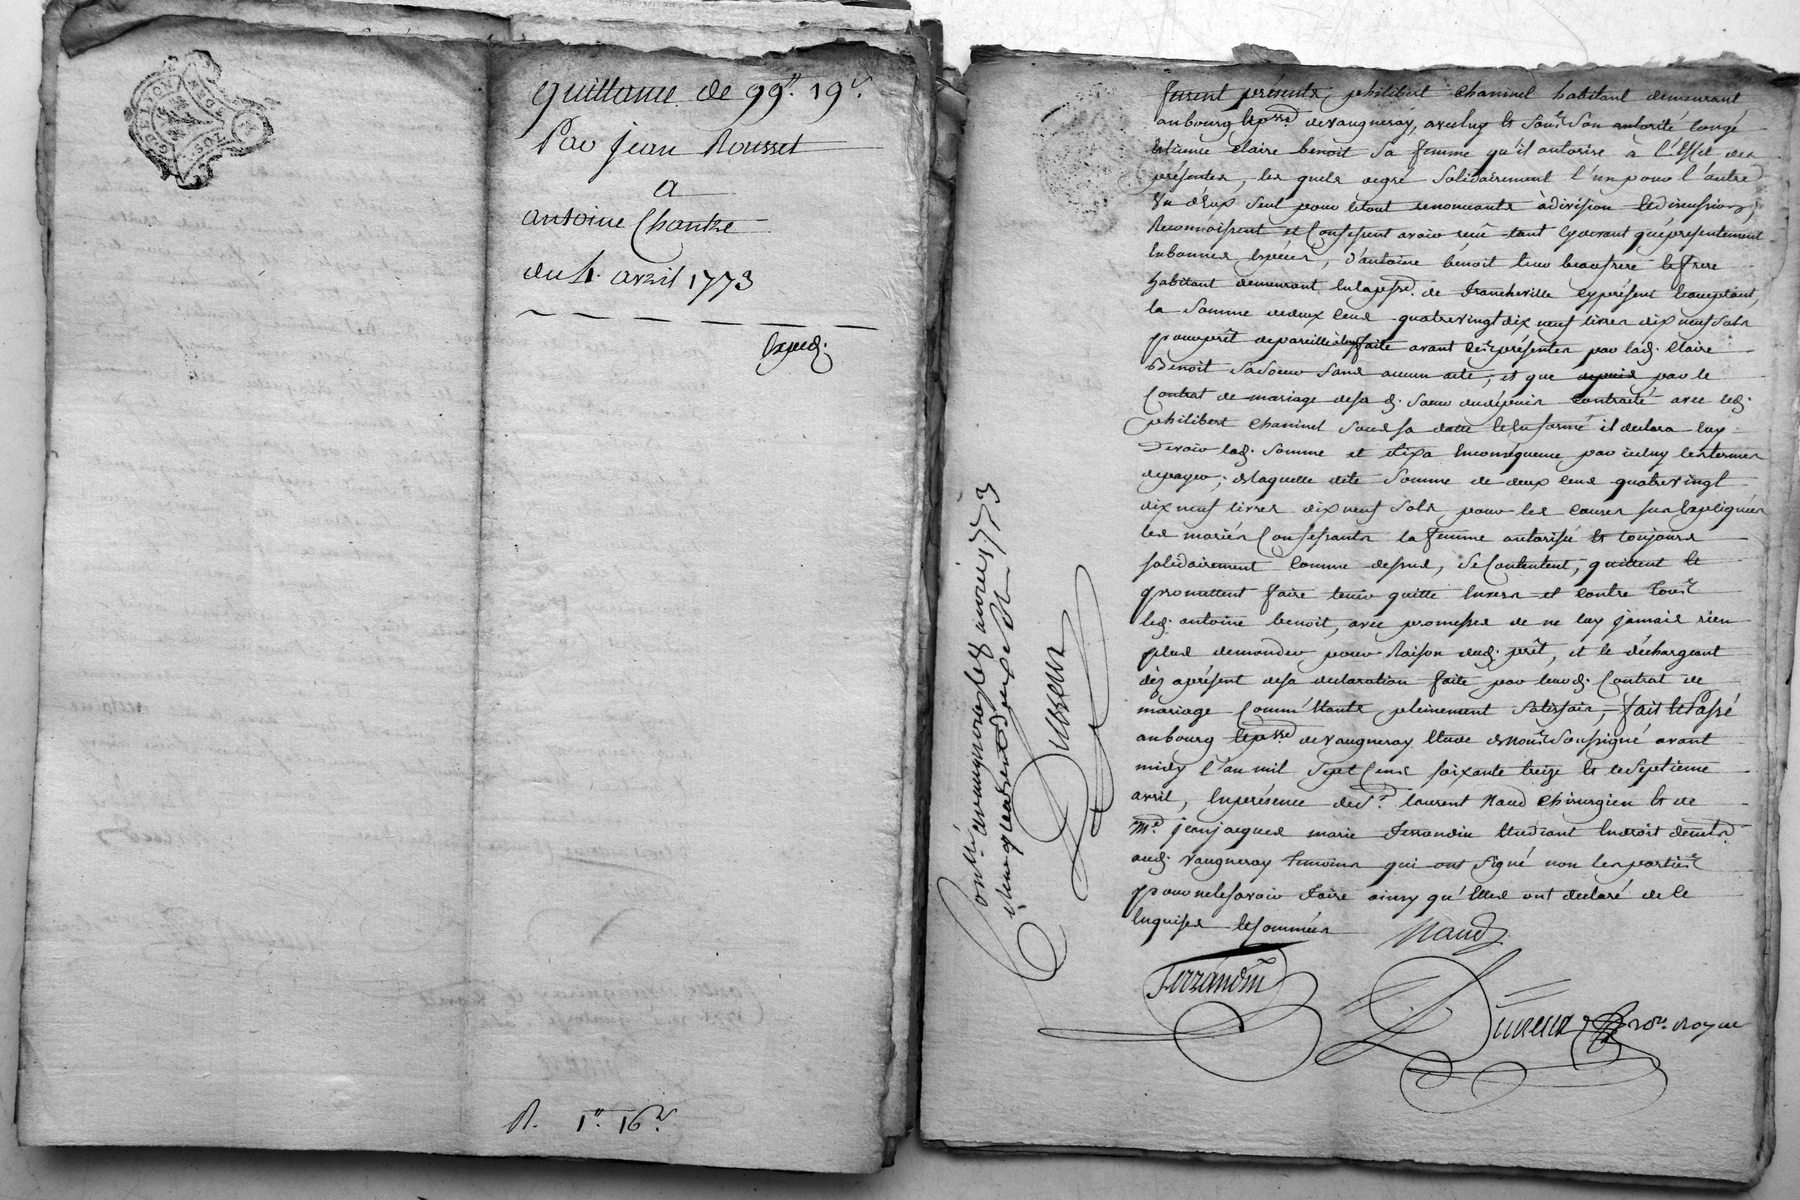 quittance de 99ᵗᵗ 19ˢ
Par jean Rousset
a
antoine Chantre
du 4 avril 1773
Exped.
R. 1ᵗᵗ 16ˢ
furent présents philibert chaninel habitant demeurant
au bourg &pss.e de vaugneray, avec luy & sous son autorité congé
licence claire benoit sa femme qu'il autorise a l'effet des
présentes, les quels de gré solidairement l'un pour l'autre
un d'eux seul pour le tout renonceants à division &discussion,
Reconnoissent et Confessent avoir reçû tant cydevant que présentement
en bonnes espèces, d'antoine benoit leur beaufrere &frere
habitant demeurant en la pss.e de francheville cy présent &acceptant,
la somme de deux cens quatrevingt dix neuf livres dix neuf sols
pour prêt de pareille à luy faite avant ces présentes par lad. Claire
Benoit sa soeur sans aucun acte, et que depuis par le
Contrat de mariage de sa d. soeur du depuis contracté avec led.
philibert chaninel sous sa datte &en forme il declara luy
devoir lad. somme et fixa en conséquence par iceluy les termes
de payer; de laquelle dite somme de deux cens quatrevingt
dix neuf livres dix neuf sols, pour les causes sus expliquées
les mariés Confessants la femme autorisée & toujours
solidairement comme dessus, se Contentent, quittent &
promettent faire tenir quitte envers et contre tous
led. antoine benoit, avec promesses de ne luy jamais rien
plus demander pour Raison dud. prêt, et le déchargeant
dès aprésent de sa declaration faite par leurd. Contrat de
mariage comme étants pleinement satisfaits, fait &Passé
au bourg &pss.e de vaugneray Etude du No.re soussigné avant
midy l'an mil sept cens soixante treize & le septieme
avril, en présence de s.r laurent Naud chirurgien & de
M.e jean jacques marie ferrandin Etudiant en droit dem.ts
aud. vaugneray temoins qui ont signé non les parties
pour ne le savoir faire ainsy qu'Elles ont declaré de ce
enquises &sommées
Naud
ferrandin
Dusseux No.re Royal
Con.lé à vaugneray le 8 avril 1773
Dusseux